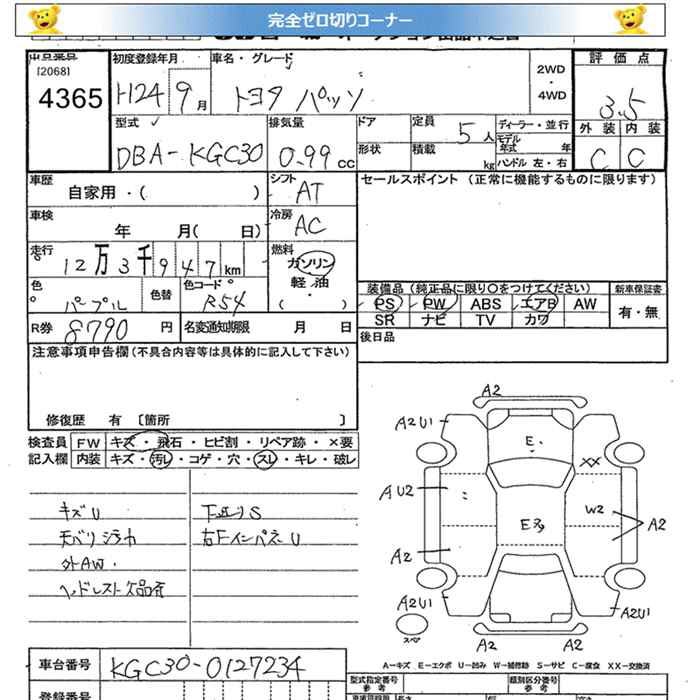 完全ゼロ切りコーナー
出品番号 初度登録年月 車名・グレード 2WD・4WD 評価点
[2068]
4365 H24 9月 トヨタ パッソ 3.5
型式 排気量 ドア 定員 5人 ディーラー・並行 外装 内装
DBA-KGC30 0.99cc 形状 積載 kg モデル年式 年 ハンドル 左・右 C C
車歴 自家用・( ) シフト AT セールスポイント (正常に機能するものに限ります)
車検 年 月( 日) 冷房 AC
走行 12万3千947km 燃料 ガソリン
軽・油
( )
装備品 (純正品に限り〇をつけてください) 新車保証書
色 パープル 色替 色コード R54 PS PW ABS エアB AW 有・無
R券 8790円 名変通知期限 月 日 SR ナビ TV カワ
注意事項申告欄 (不具合内容等は具体的に記入して下さい) 後日品
修復歴 有 〔箇所 〕
検査員 FW キズ・飛石・ヒビ割・リペア跡・×要
記入欄 内装 キズ・汚レ・コゲ・穴・スレ・キレ・破レ
キズU 下廻りS
天バリシラカ 右FインパネU
外AW.
ヘッドレスト欠品有
A2
A2U1
E.
XX
AU2
W2
E多
A2
A2
A2U1
A2U1
スペア
A2
A2
A-キズ E-エクボ U-凹み W-補修跡 S-サビ C-腐食 XX-交換済
車台番号 KGC30-0127234
型式指定番号 参考 類別区分番号 参考
登録番号